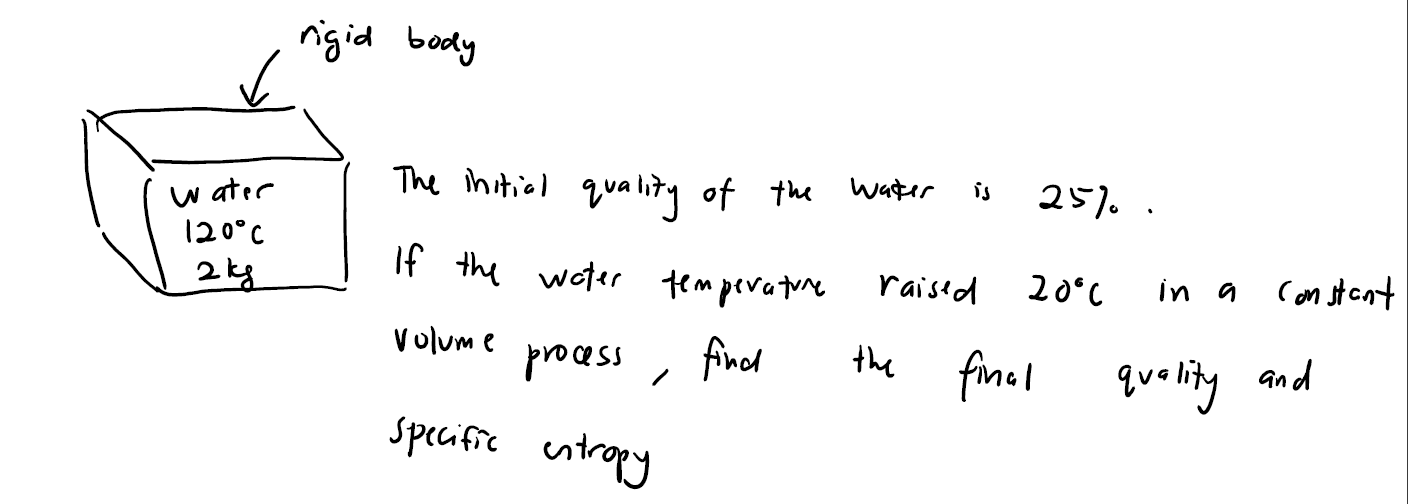 rigid body
water
120°C
2 kg
The initial quality of the water is 25%.
If the water temperature raised 20°C in a constant
volume process, find the final quality and
specific entropy